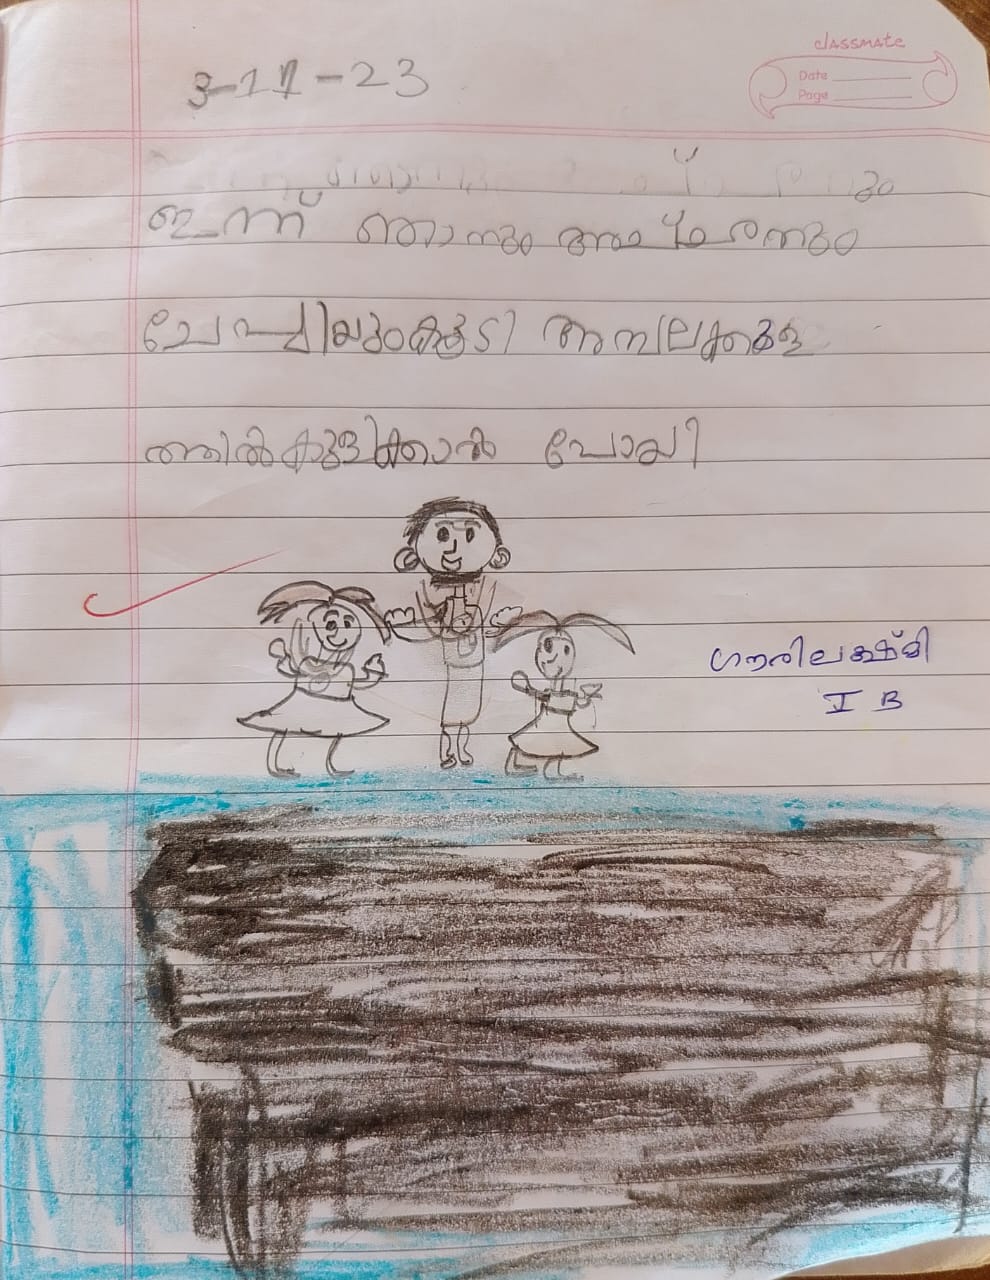 classmate
Date
Page
3-11-23
ഇന്ന് ഞാനും അച്ഛനും
ചേച്ചിയുംകൂടി അമ്പലക്കുള
ത്തിൽകുളിക്കാൻ പോയി
ഗൗരിലക്ഷ്മി
I B